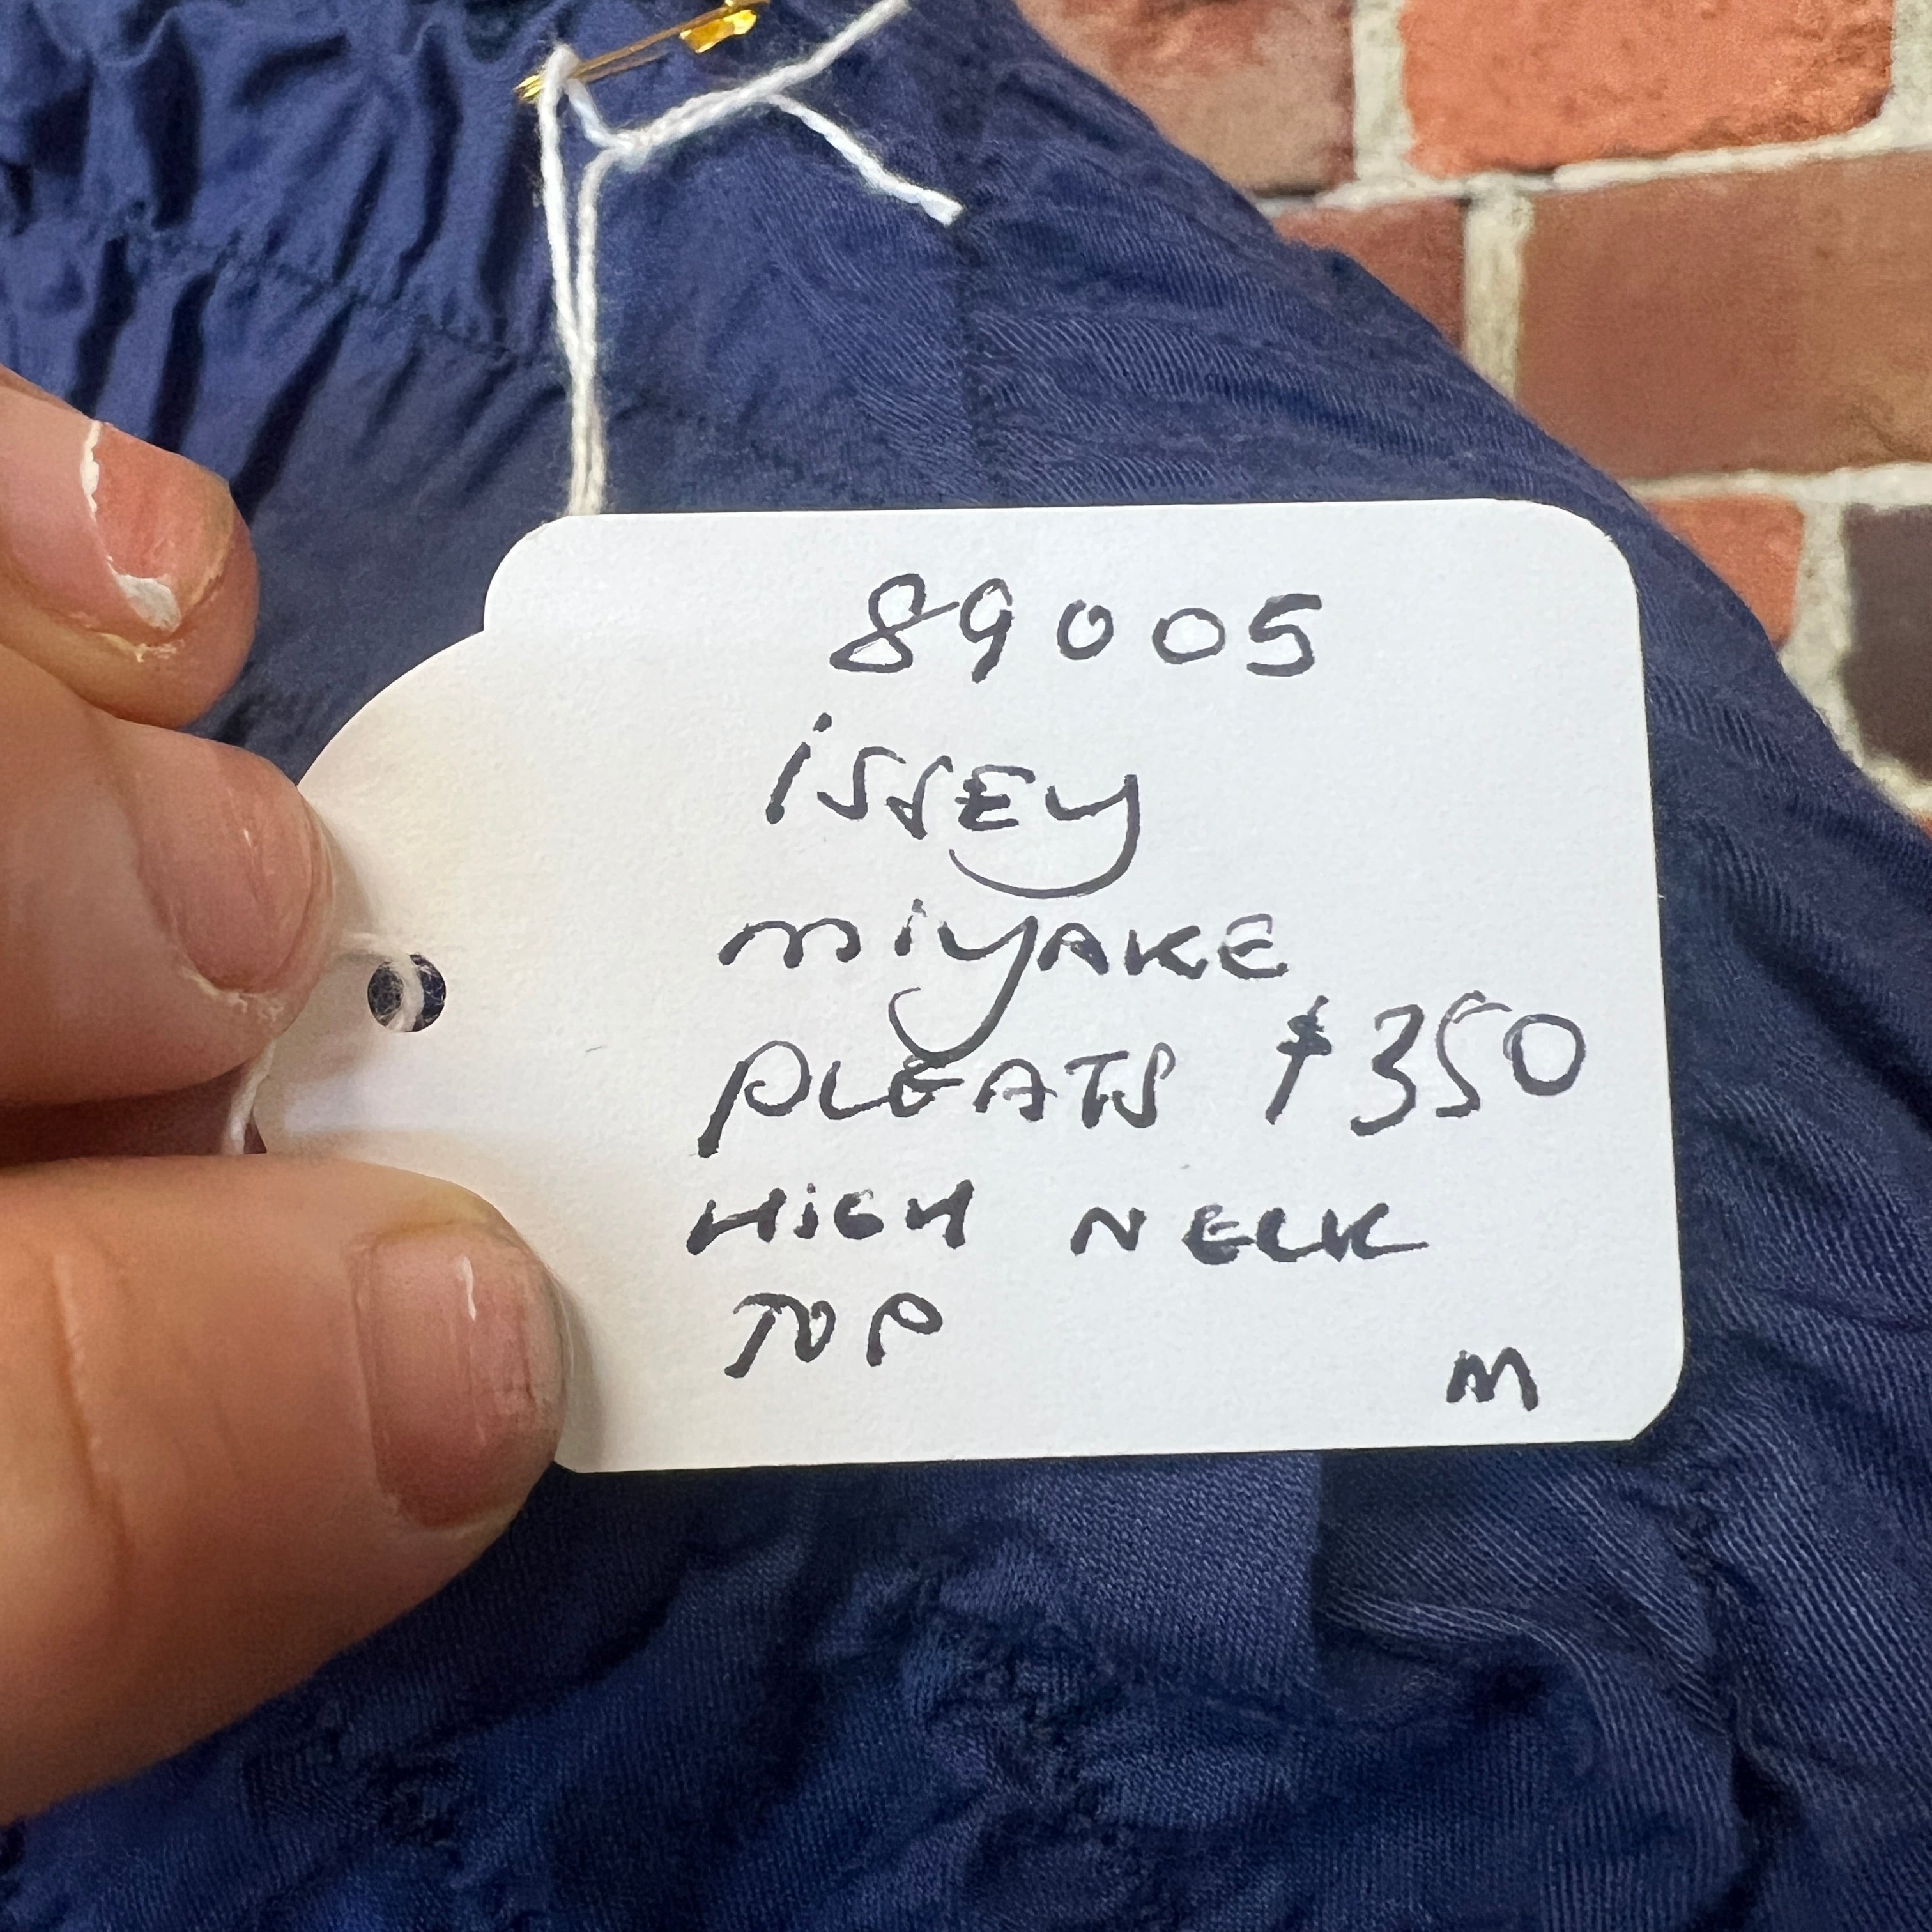 89005
issey
miyAKE
PLEATS $350
HiGH NECK
TOP
M